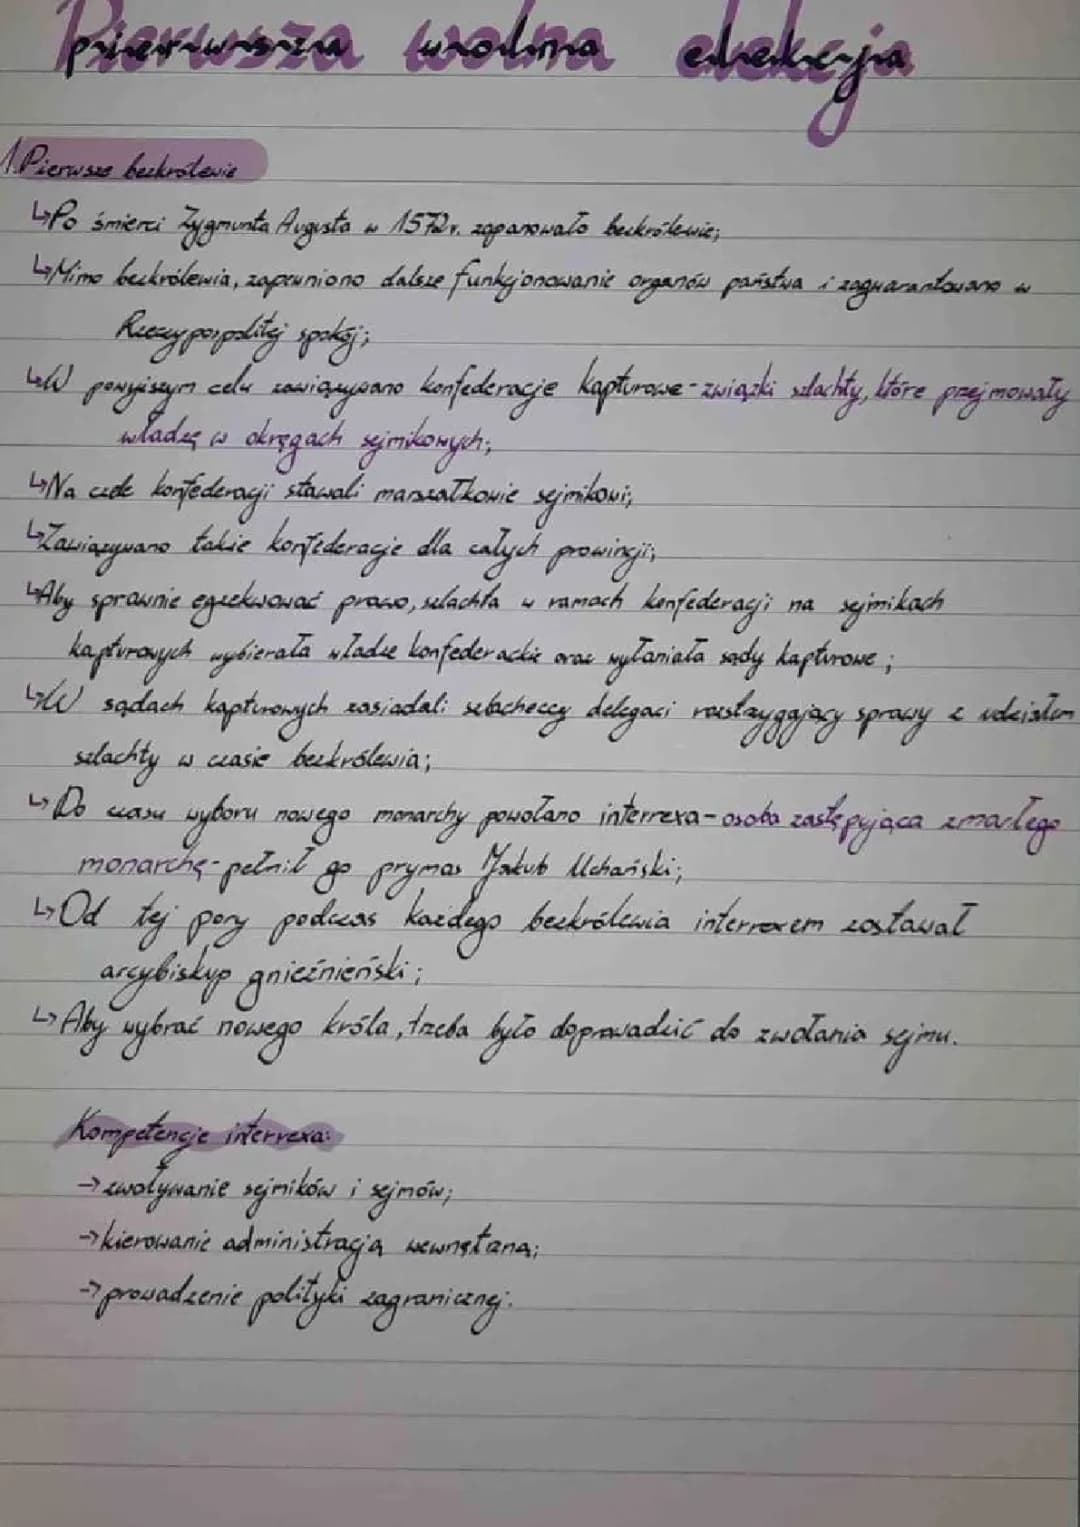 Pierwsza wolna elekcja
1. Pierwsze bezkrólewie
↳Po śmierci Zygmunta Augusta w 1572r. zapanowało bezkrólewie;
↳Mimo bezkrólewia, zapewniono dalsze funkcjonowanie organów państwa i zagwarantowano w
Rzeczypospolitej spokój;
↳W powyższym celu zawiązywano konfederacje kapturowe-związki szlachty, które przejmowały
władzę w okręgach sejmikowych;
↳Na czele konfederacji stawali marszałkowie sejmikowi;
↳Zawiązywano takie konfederacje dla całych prowincji;
↳Aby sprawnie egzekwować prawo, szlachta w ramach konfederacji na sejmikach
kapturowych wybierała władze konfederackie oraz wyłaniała sądy kapturowe;
↳W sądach kapturowych zasiadali szlacheccy delegaci rozstrzygający sprawy z udziałem
szlachty w czasie bezkrólewia;
↳Do czasu wyboru nowego monarchy powołano interrexa-osoba zastępująca zmarłego
monarchę-pełnił go prymas Jakub Uchański;
↳Od tej pory podczas każdego bezkrólewia interrexem zostawał
arcybiskup gnieźnieński;
↳Aby wybrać nowego króla, trzeba było doprowadzić do zwołania sejmu.
Kompetencje interrexa:
→zwoływanie sejmików i sejmów;
→kierowanie administracją wewnętrzną;
→prowadzenie polityki zagranicznej.